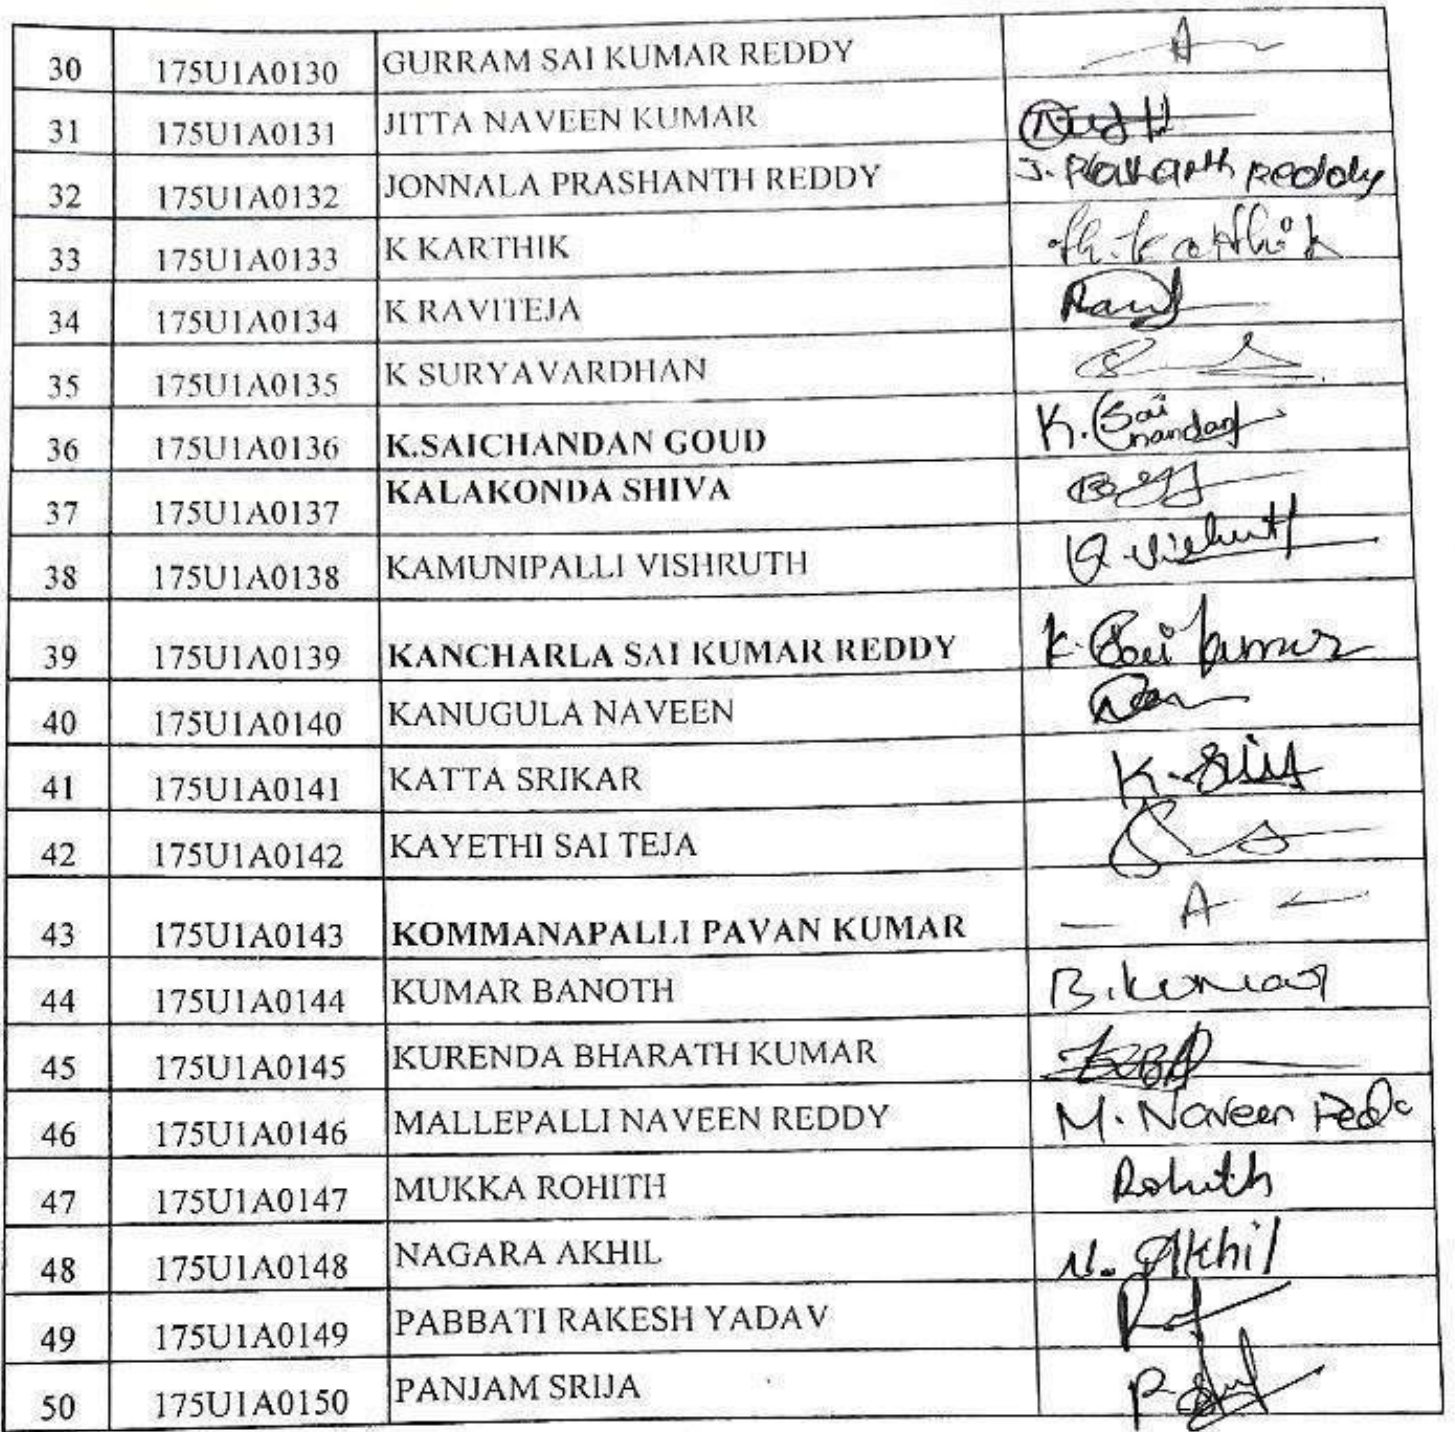 30 175U1A0130 GURRAM SAI KUMAR REDDY A
31 175U1A0131 JITTA NAVEEN KUMAR
32 175U1A0132 JONNALA PRASHANTH REDDY J. Prashanth Reddy
33 175U1A0133 K KARTHIK
34 175U1A0134 K RAVITEJA
35 175U1A0135 K SURYAVARDHAN
36 175U1A0136 K.SAICHANDAN GOUD K. Sai
37 175U1A0137 KALAKONDA SHIVA
38 175U1A0138 KAMUNIPALLI VISHRUTH
39 175U1A0139 KANCHARLA SAI KUMAR REDDY K. Sai kumar
40 175U1A0140 KANUGULA NAVEEN
41 175U1A0141 KATTA SRIKAR
42 175U1A0142 KAYETHI SAI TEJA
43 175U1A0143 KOMMANAPALLI PAVAN KUMAR - A -
44 175U1A0144 KUMAR BANOTH B. Kumar
45 175U1A0145 KURENDA BHARATH KUMAR
46 175U1A0146 MALLEPALLI NAVEEN REDDY M. Naveen
47 175U1A0147 MUKKA ROHITH Rohith
48 175U1A0148 NAGARA AKHIL N. Akhil
49 175U1A0149 PABBATI RAKESH YADAV
50 175U1A0150 PANJAM SRIJA